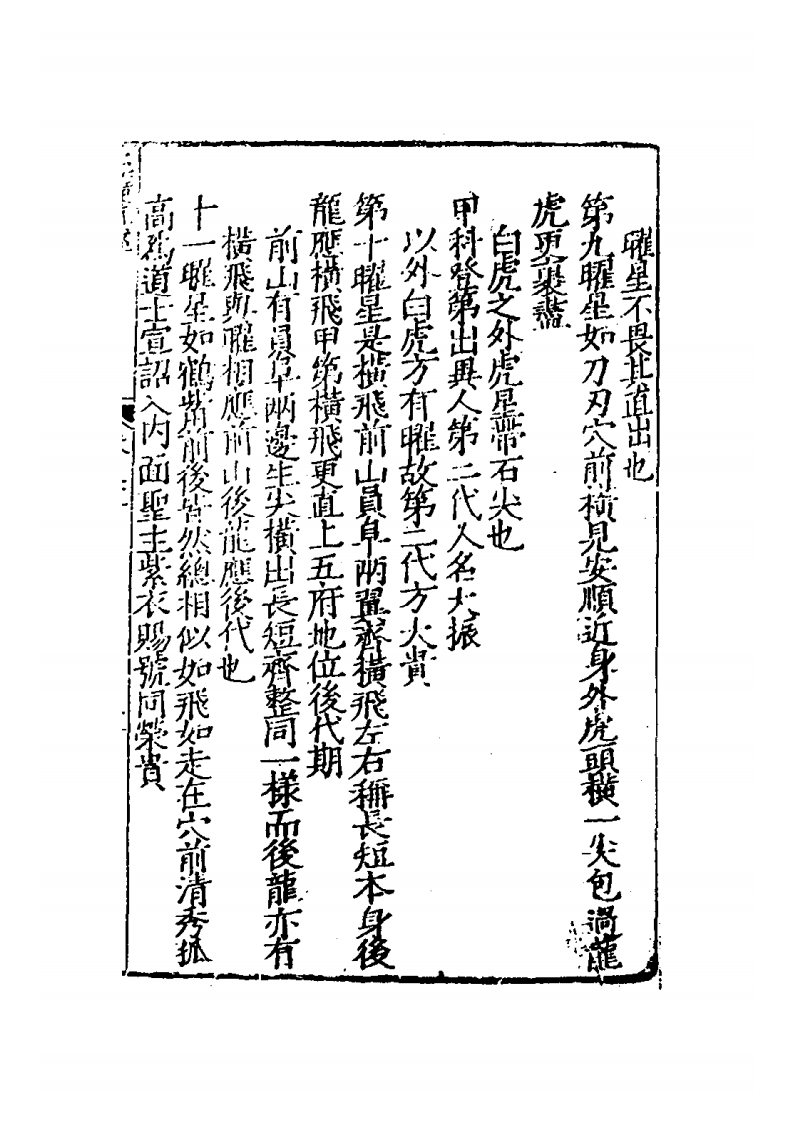 曜星不畏其直出也
第九曜星如刀刃穴前橫見安順近身外虎頭橫一尖包過龍
虎更裹盡
白虎之外虎星帶石尖也
甲科登第出異人第二代人名大振
以外白虎方有曜故第二代方大貴
第十曜星是橫飛前山員阜兩翼齊橫飛左右稱長短本身後
龍應橫飛甲第橫飛更直上五府地位後代期
前山有員阜兩邊生尖橫出長短齊整同一樣而後龍亦有
橫飛與曜相應前山後龍應後代也
十一曜星如鶴觜前後皆然總相似如飛如走在穴前清秀孤
高為道士宣詔入內面聖主紫衣賜號同榮貴